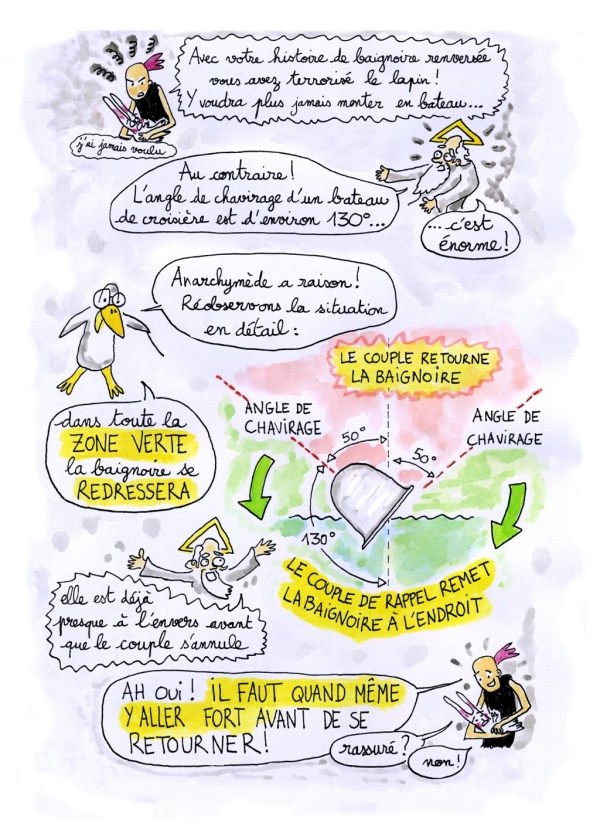 Avec votre histoire de baignoire renversée
vous avez terrorisé le lapin !
Y voudra plus jamais monter en bateau...
j'ai jamais voulu
Au contraire !
L'angle de chavirage d'un bateau
de croisière est d'environ 130°...
... c'est
énorme !
Anarchymède a raison !
Réobservons la situation
en détail :
dans toute la
ZONE VERTE
la baignoire se
REDRESSERA
LE COUPLE RETOURNE
LA BAIGNOIRE
ANGLE DE
CHAVIRAGE
ANGLE DE
CHAVIRAGE
50°
50°
130°
LE COUPLE DE RAPPEL REMET
LA BAIGNOIRE À L'ENDROIT
elle est déjà
presque à l'envers avant
que le couple s'annule
AH OUI ! IL FAUT QUAND MÊME
Y ALLER FORT AVANT DE SE
RETOURNER !
rassuré ?
non !